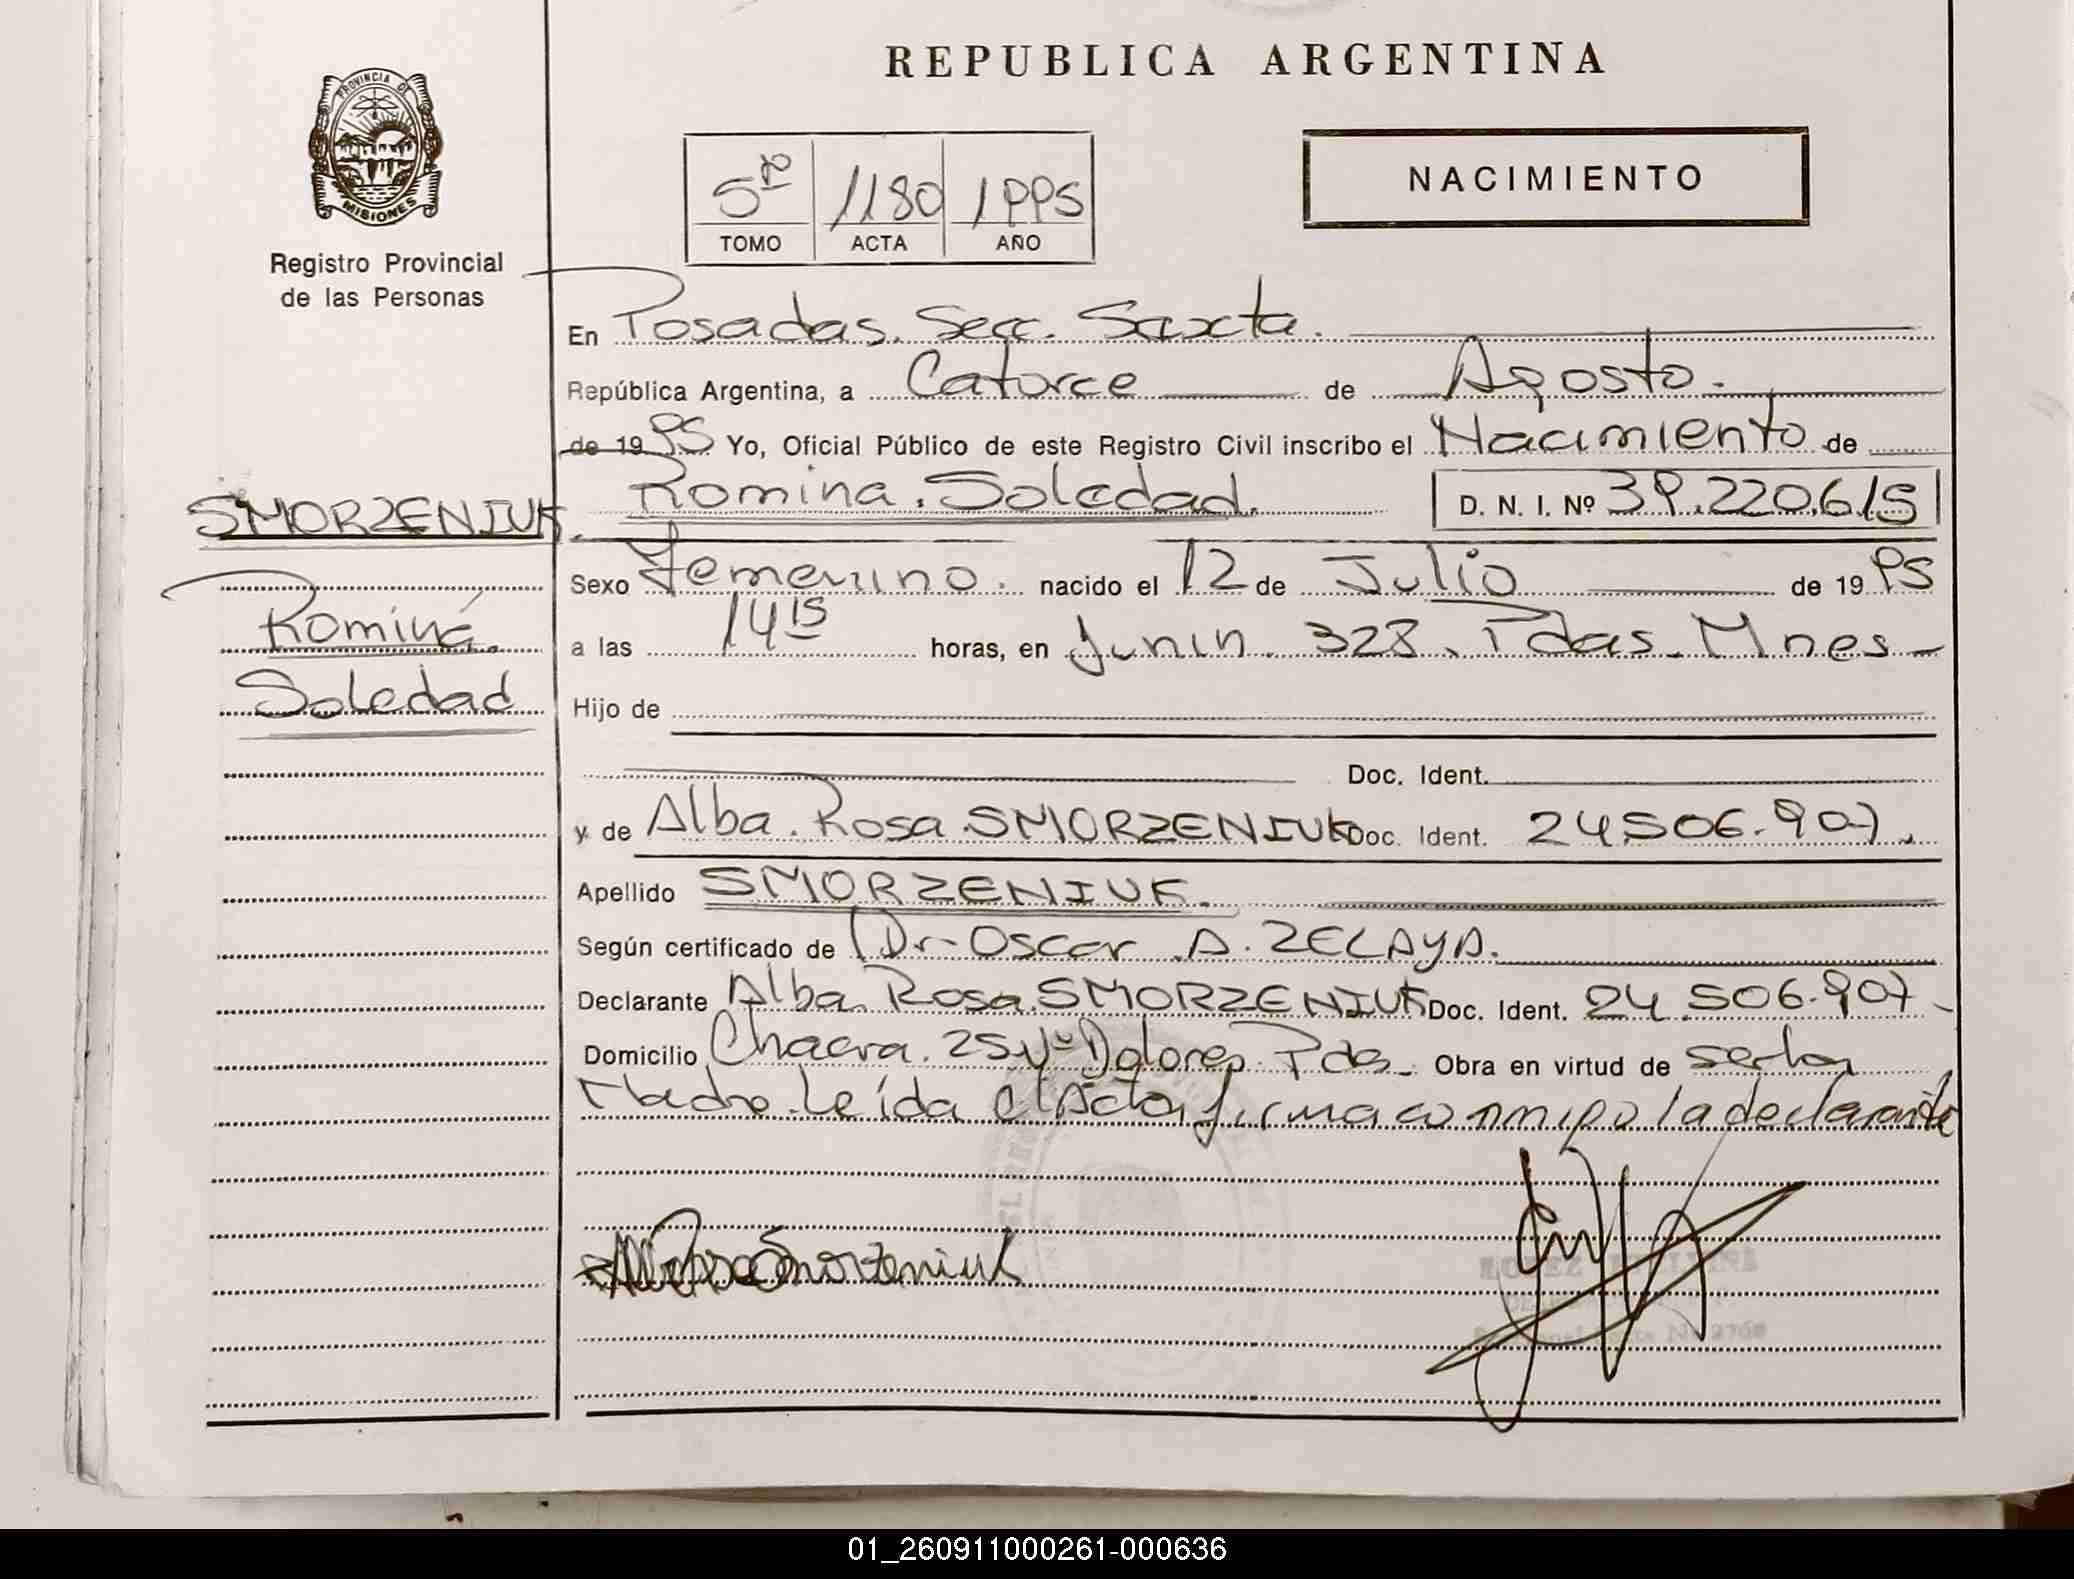 REPUBLICA ARGENTINA
PROVINCIA DE
MISIONES
Registro Provincial
de las Personas
NACIMIENTO
5º 1180 1995
TOMO ACTA AÑO
En Posadas. Secc. Sexta.
República Argentina, a Catorce de Agosto.
de 19 95 Yo, Oficial Público de este Registro Civil inscribo el Nacimiento de
SMORZENIUK.
Romina
Soledad
Romina. Soledad. D. N. I. Nº 39.220.615
Sexo Femenino. nacido el 12 de Julio de 19 95
a las 14 15 horas, en Junin. 328. Pdas. Mnes
Hijo de
Doc. Ident.
y de Alba. Rosa. SMORZENIUK Doc. Ident. 24.506.907.
Apellido SMORZENIUK.
Según certificado de Dr. Oscar A. ZELAYA.
Declarante Alba. Rosa. SMORZENIUK Doc. Ident. 24.506.907
Domicilio Chacra. 25 Vº Dolores. Pdas. Obra en virtud de ser la
Madre. Leída el Acta firma conmigo la declarante
Alba Rosa Smorzeniuk
01_260911000261-000636